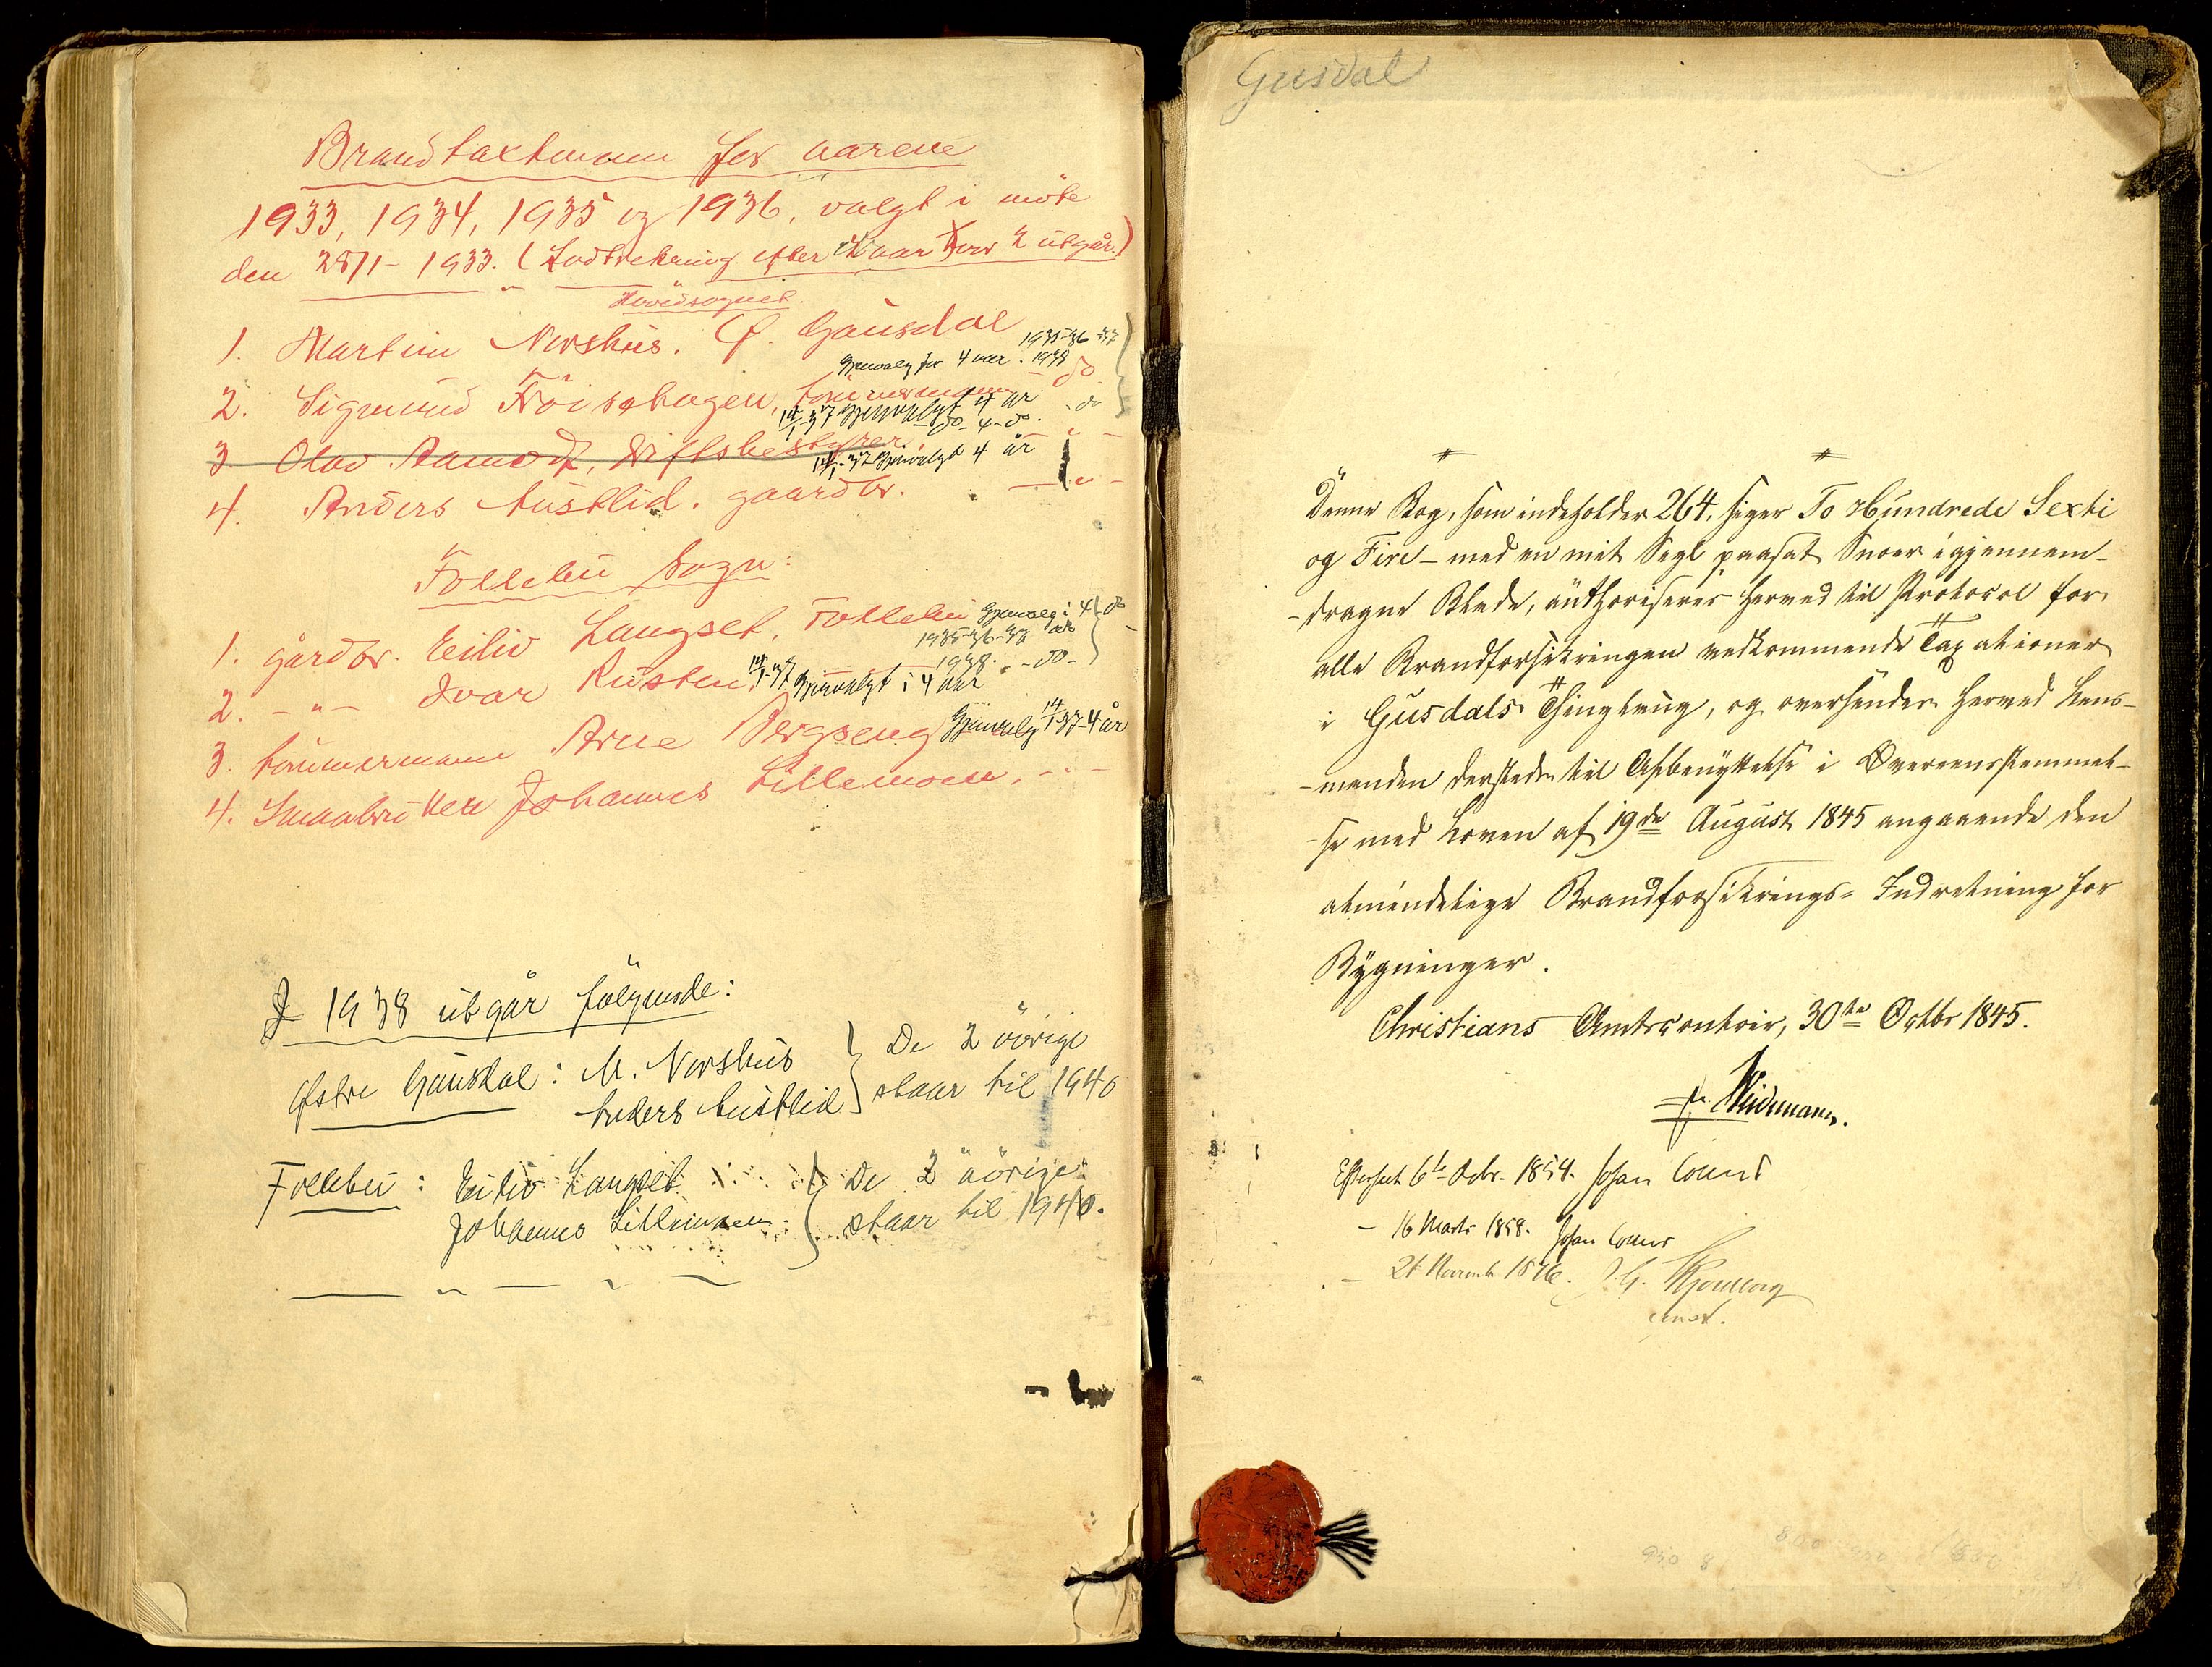 Brandtaxtmenn for aarene
1933, 1934, 1935 og 1936, valgt i möte
den 28/1-1933. (Lodtrekning efter aar hvor 2 utgår.)
Hovedsognet.
1. Martin Norshus. Ø. Gausdal
1935-36-37
Gjenvalg for 4 aar. 1938
2. Sigmund Fröisehagen, tömmermann do
14/1-37 Gjenvalgt 4 år - do
do - 4 - do.
3. Olav Aamodt, driftsbestyrer - " -
14/1-37 Gjenvalgt 4 år
4. Anders Austlid. gaardbr. - " -
Follebu Sogn:
1. gårdbr. Eiliv Langset, Follebu Gjenvalg i 4 år do
1935-36-37
1938.
2. - " - Ivar Rusten 14/1-37 Gjenvalgt i 4 aar - do -
3. tömmermann Arne Bergseng Gjenvalg 14/1-37-4 år
4. Smaabruker Johannes Lillemoen. - " -
I 1938 utgår fölgende:
Østre Gausdal: M. Norshus } De 2 övrige
Anders Austlid } staar til 1940
Follebu: Eiliv Langset } De 2 övrige
Johannes Lillemoen } staar til 1940.
Gusdal
Denne Bog, som indeholder 264, siger To Hundrede Sexti
og Fire - med en mit Segl paasat Snoer igjennem-
-dragne Blade, authoriseres herved til Protocol for
alle Brandforsikringen vedkommende Taxationer
i Gusdals Thinglaug, og oversendes herved Lens-
-manden dersteds til Afbenyttelse i Overeensstemmel-
-se med Loven af 19de August 1845 angaaende den
almindelige Brandforsikrings-Indretning for
Bygninger.
Christians Amtscontoir, 30te Octbr 1845.
Weidemann.
Efterseet 6te Octbr. 1854. Johan Collett
- 16 Marts 1858. Johan Collett
- 21 Novemb 1876.
const.